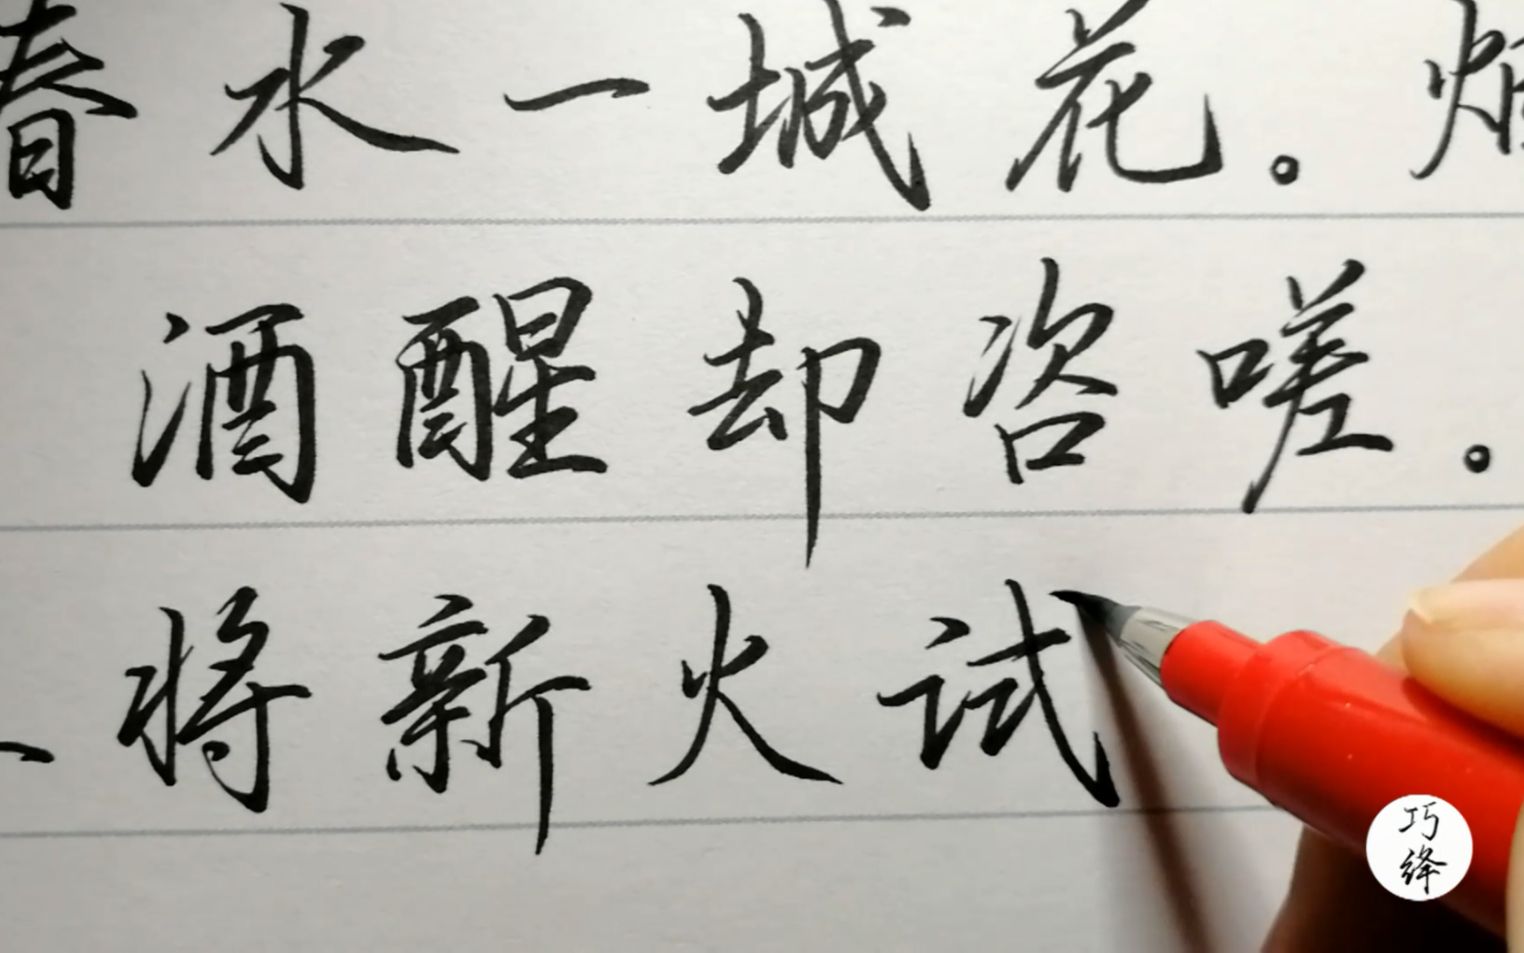 春水一城花。烟
酒醒却咨嗟。
将新火试
巧
绛